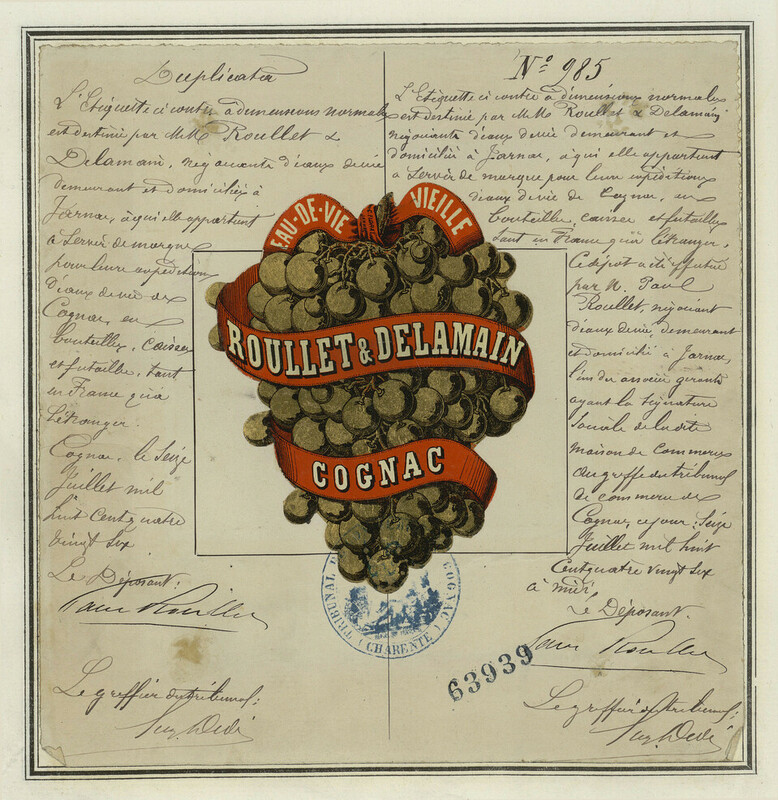 Duplicata
L'Etiquette ci contre à dimensions normales
est destinée par MM. Roullet &
Delamain, négociants d'eaux de vie
demeurant et domiciliés à
Jarnac, à qui elle appartient
à servir de marque
pour leurs expéditions
d'eaux de vie de
Cognac, en
bouteilles, caisses
et futailles, tant
en France qu'à
l'étranger.
Cognac, le Seize
Juillet mil
huit cent quatre
vingt six
Le Déposant.
Paul Roullet
Le greffier du tribunal;
No 985
L'Etiquette ci contre à dimensions normales
est destinée par MM. Roullet & Delamain
négociants d'eaux de vie demeurant et
domiciliés à Jarnac, à qui elle appartient
à servir de marque pour leurs expéditions
d'eaux de vie de Cognac, en
bouteilles, caisses et futailles
tant en France qu'à l'étranger.
Ce dépôt a été effectué
par M. Paul
Roullet, négociant
d'eaux de vie, demeurant
et domicilié à Jarnac,
l'un des associés gérants
ayant la signature
sociale de la dite
maison de commerce
au greffe du tribunal
de commerce de
Cognac, ce jour, Seize
Juillet mil huit
cent quatre vingt six
à midi
Le Déposant.
Paul Roullet
Le greffier du tribunal;
EAU-DE-VIE VIEILLE
ROULLET & DELAMAIN
COGNAC
TRIBUNAL D COGNAC
(CHARENTE)
63939